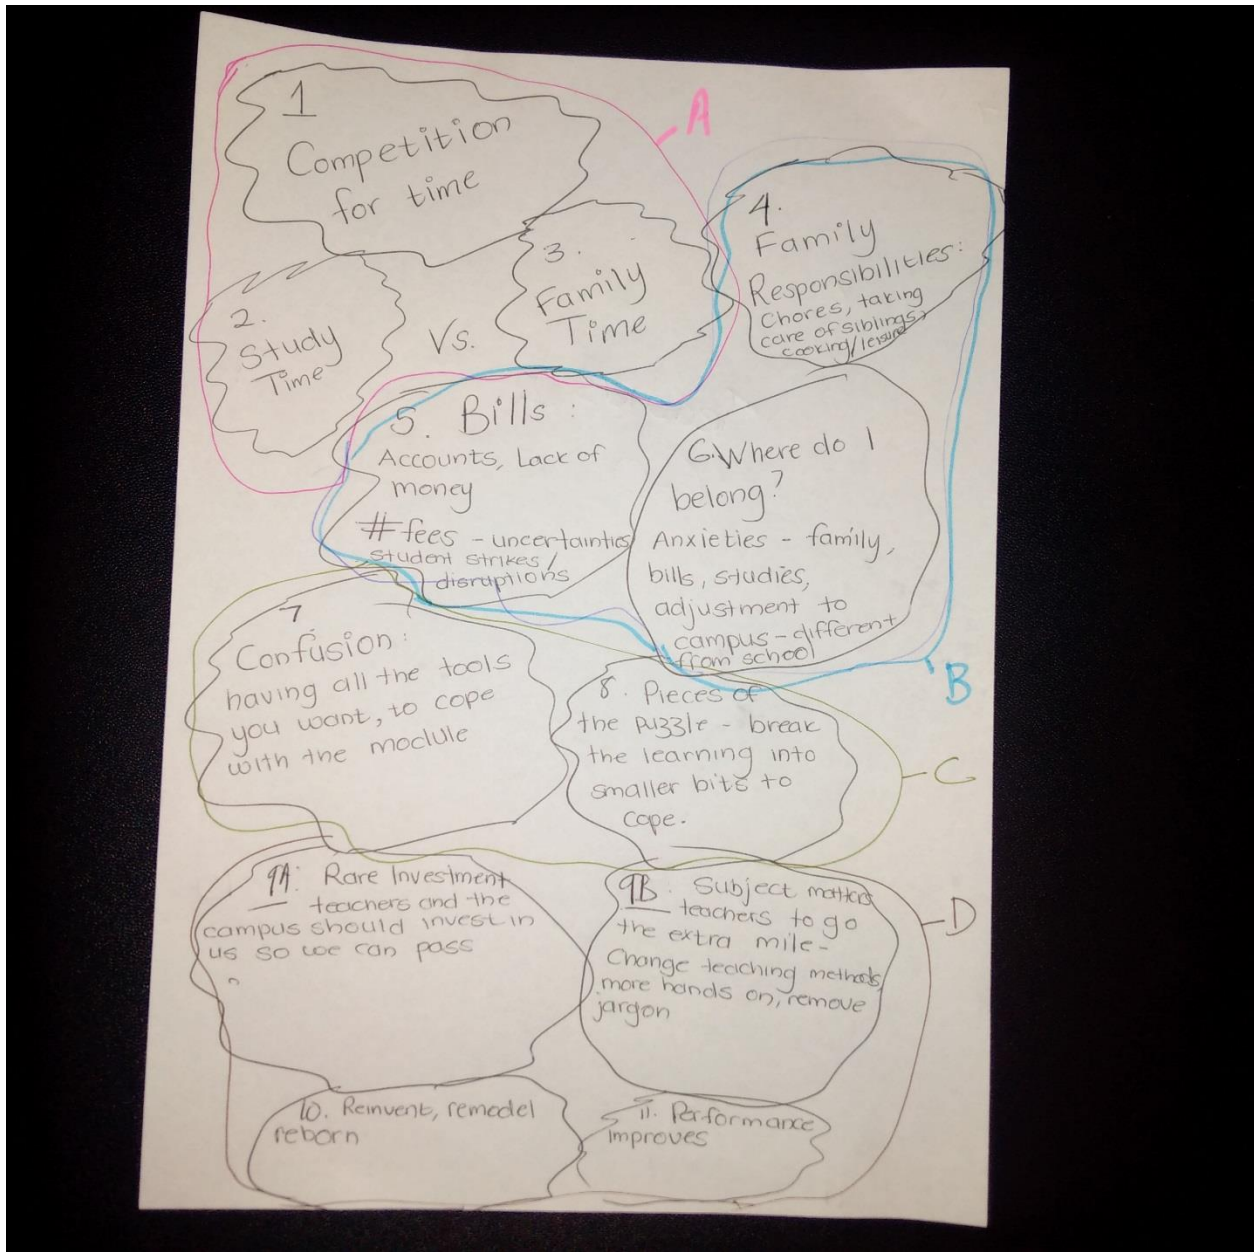 1
Competition
for time
A
2.
Study
Time
Vs.
3.
Family
Time
4.
Family
Responsibilities:
Chores, taking
care of siblings,
cooking/leisure
5. Bills :
Accounts, Lack of
money
#fees - uncertainties
student strikes/
disruptions
6. Where do I
belong?
Anxieties - family,
bills, studies,
adjustment to
campus - different
from school
B
7
Confusion:
having all the tools
you want, to cope
with the module
8. Pieces of
the puzzle - break
the learning into
smaller bits to
cope.
C
9A: Rare Investment
teachers and the
campus should invest in
us so we can pass
9B. Subject
teachers to go
the extra mile-
Change teaching methods,
more hands on, remove
jargon
D
10. Reinvent, remodel
reborn
11. Performance
improves